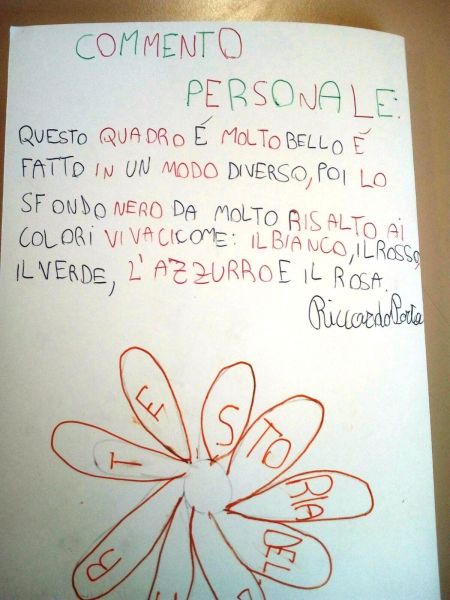 COMMENTO
PERSONALE:
QUESTO QUADRO É MOLTO BELLO É
FATTO IN UN MODO DIVERSO, POI LO
SFONDO NERO DA MOLTO RISALTO AI
COLORI VIVACI COME: IL BIANCO, IL ROSSO,
IL VERDE, L'AZZURRO E IL ROSA.
Riccardo Porta
STORIA DEL
R T E